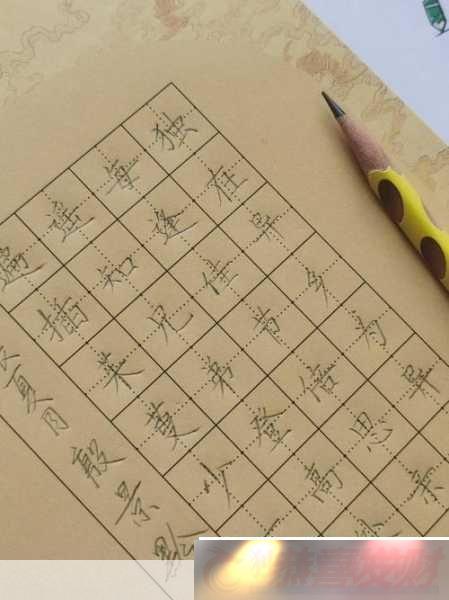 独在异乡为异
每逢佳节倍思亲
遥知兄弟登高处
遍插茱萸少
夏月殷景